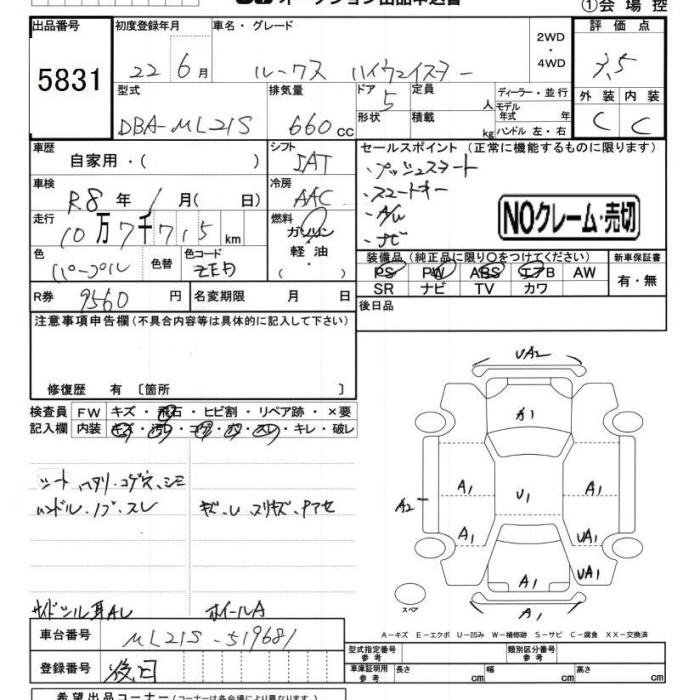 ①会場控
出品番号 初度登録年月 車名・グレード 2WD・4WD 評価点
5831 22 6月 ルークス ハイウェイスター 3.5
型式 排気量 ドア 定員 人 ディーラー・並行 外装 内装
DBA-ML21S 660cc 5 形状 積載 kg モデル年式 年 ハンドル 左・右 C C
車歴 自家用・( ) シフト IAT
セールスポイント (正常に機能するものに限ります)
・プッシュスタート
・スマートキー
・A/W
・ナビ
NOクレーム・売切
車検 R8年 1月( 日) 冷房 AAC
走行 10万7千715km 燃料 ガソリン・軽油・
色 パープル 色替 色コード ZED
装備品 (純正品に限り○をつけてください) 新車保証書
PS PW ABS エアB AW 有・無
SR ナビ TV カワ
R券 9560円 名変期限 月 日
後日品
注意事項申告欄 (不具合内容等は具体的に記入して下さい)
修復歴 有 〔箇所 〕
検査員記入欄 FW キズ・飛石・ヒビ割・リペア跡・×要
内装 キズ・汚れ・コゲ・穴・スレ・キレ・破レ
シート ヘタリ・コゲ穴・シミ
ハンドル・ノブ・スレ
キズ・U スリキズ・タアセ
サイドシル耳AU
ホイールA
UA2
A1
A1
A2
A1
U1
A1
A1
UA1
A1
UA1
A1
スペア
A-キズ E-エクボ U-凹み W-補修跡 S-サビ C-腐食 XX-交換済
車台番号 ML21S-519681
登録番号 後日
型式指定番号 参考 類別区分番号 参考
車庫証明用 参考 長さ cm 幅 cm 高さ cm
希望出品コーナー (コーナーは各会場により異なります)